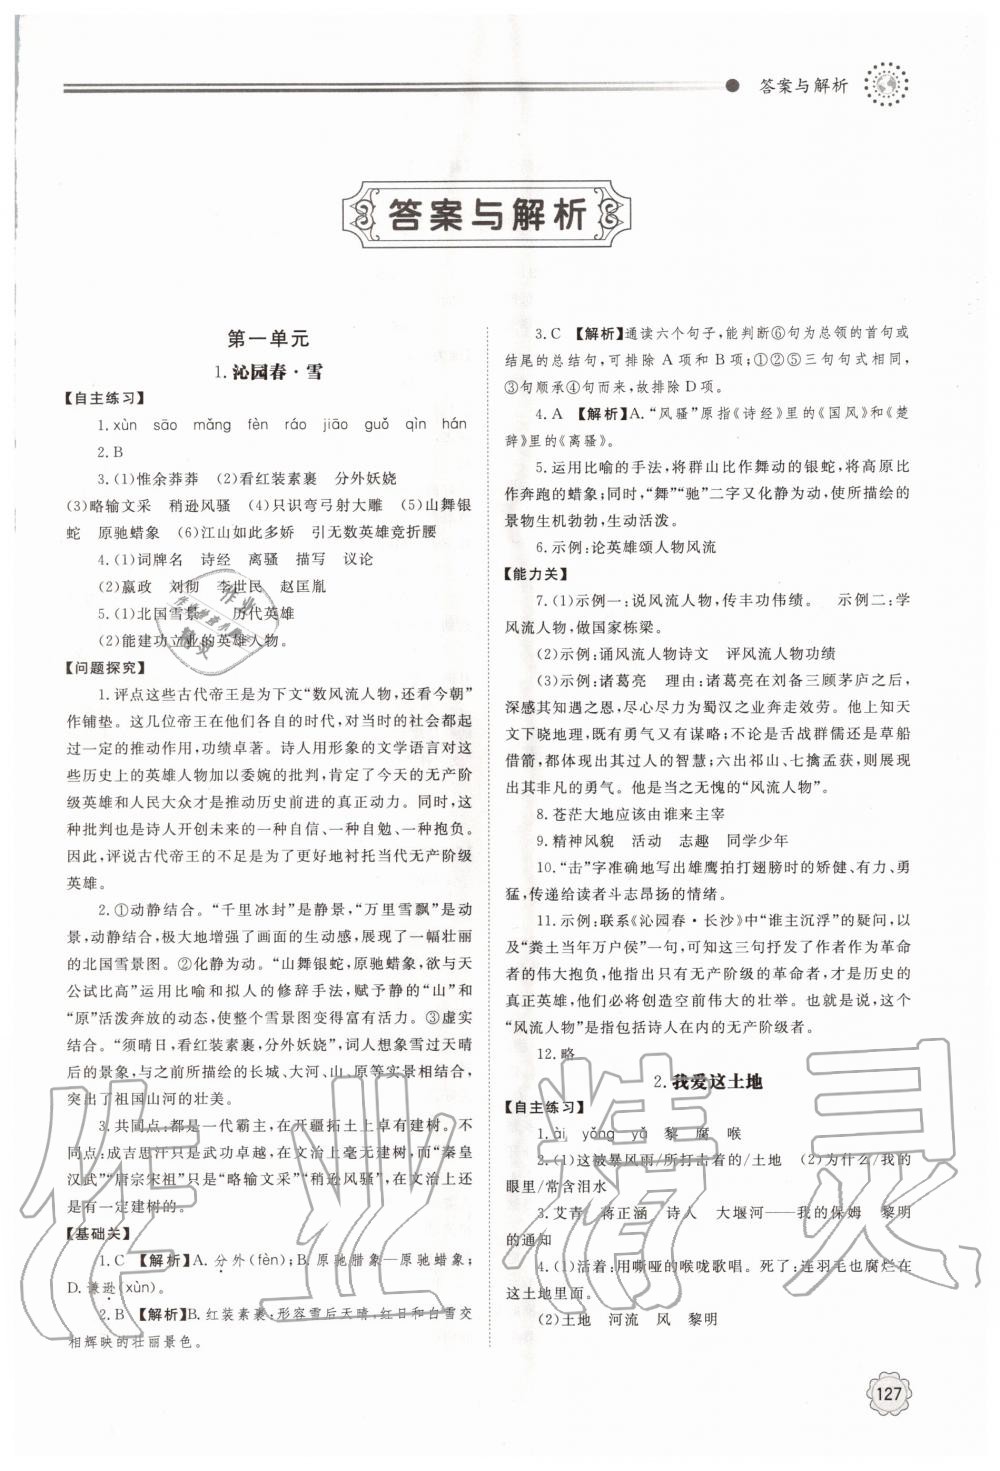 答案与解析
答案与解析
第一单元
1.沁园春·雪
【自主练习】
1.xùn sāo mǎng fèn ráo jiāo guǒ qìn hán
2.B
3.(1)惟余莽莽 (2)看红装素裹 分外妖娆
(3)略输文采 稍逊风骚 (4)只识弯弓射大雕 (5)山舞银
蛇 原驰蜡象 (6)江山如此多娇 引无数英雄竞折腰
4.(1)词牌名 诗经 离骚 描写 议论
(2)嬴政 刘彻 李世民 赵匡胤
5.(1)北国雪景 历代英雄
(2)能建功立业的英雄人物。
【问题探究】
1.评点这些古代帝王是为下文“数风流人物,还看今朝”
作铺垫。这几位帝王在他们各自的时代,对当时的社会都起
过一定的推动作用,功绩卓著。诗人用形象的文学语言对这
些历史上的英雄人物加以委婉的批判,肯定了今天的无产阶
级英雄和人民大众才是推动历史前进的真正动力。同时,这
种批判也是诗人开创未来的一种自信、一种自勉、一种抱负。
因此,评说古代帝王的不足是为了更好地衬托当代无产阶级
英雄。
2.①动静结合。“千里冰封”是静景,“万里雪飘”是动
景,动静结合,极大地增强了画面的生动感,展现了一幅壮丽
的北国雪景图。②化静为动。“山舞银蛇,原驰蜡象,欲与天
公试比高”运用比喻和拟人的修辞手法,赋予静的“山”和
“原”活泼奔放的动态,使整个雪景图变得富有活力。③虚实
结合。“须晴日,看红装素裹,分外妖娆”,词人想象雪过天晴
后的景象,与前面所描绘的长城、大河、山、原等实景相结合,
突出了祖国山河的壮美。
3.共同点:都是一代霸主,在开疆拓土上卓有建树。不
同点:成吉思汗只是武功卓越,在文治上毫无建树;而“秦皇
汉武”“唐宗宋祖”只是“略输文采”“稍逊风骚”,在文治上还
是有一定建树的。
【基础关】
1.C 【解析】A.分外(fèn);B.原驰腊象—原驰蜡象;
D.谦逊(xùn)。
2.B 【解析】B.红装素裹:形容雪后天晴,红日和白雪交
相辉映的壮丽景色。
3.C 【解析】通读六个句子,能判断⑥句为总领的首句或
结尾的总结句,可排除A项和B项;①②⑤三句句式相同,
③句顺承④句而来,故排除D项。
4.A 【解析】A.“风骚”原指《诗经》里的《国风》和《楚
辞》里的《离骚》。
5.运用比喻的手法,将群山比作舞动的银蛇,将高原比
作奔跑的蜡象;同时,“舞”“驰”二字又化静为动,使所描绘的
景物生机勃勃,生动活泼。
6.示例:论英雄颂人物风流
【能力关】
7.(1)示例一:说风流人物,传丰功伟绩。 示例二:学
风流人物,做国家栋梁。
(2)示例:诵风流人物诗文 评风流人物功绩
(3)示例:诸葛亮 理由:诸葛亮在刘备三顾茅庐之后,
深感其知遇之恩,尽心尽力为蜀汉之业奔走效劳。他上知天
文下晓地理,既有勇气又有谋略;不论是舌战群儒还是草船
借箭,都体现出其过人的智慧;六出祁山、七擒孟获,则展现
出其非凡的勇气。他是当之无愧的“风流人物”。
8.苍茫大地应该由谁来主宰
9.精神风貌 活动 志趣 同学少年
10.“击”字准确地写出雄鹰拍打翅膀时的矫健、有力、勇
猛,传递给读者斗志昂扬的情绪。
11.示例:联系《沁园春·长沙》中“谁主沉浮”的疑问,以
及“粪土当年万户侯”一句,可知这三句抒发了作者作为革命
者的伟大抱负,他指出只有无产阶级的革命者,才是历史的
真正英雄,他们必将创造空前伟大的壮举。也就是说,这个
“风流人物”是指包括诗人在内的无产阶级者。
12.略
2.我爱这土地
【自主练习】
1.ài yǒng yǎ 黎 腐 喉
2.(1)这被暴风雨/所打击着的/土地 (2)为什么/我的
眼里/常含泪水
3.艾青 蒋正涵 诗人 大堰河——我的保姆 黎明
的通知
4.(1)活着:用嘶哑的喉咙歌唱。死了:连羽毛也腐烂在
这土地里面。
(2)土地 河流 风 黎明
127
作业精灵